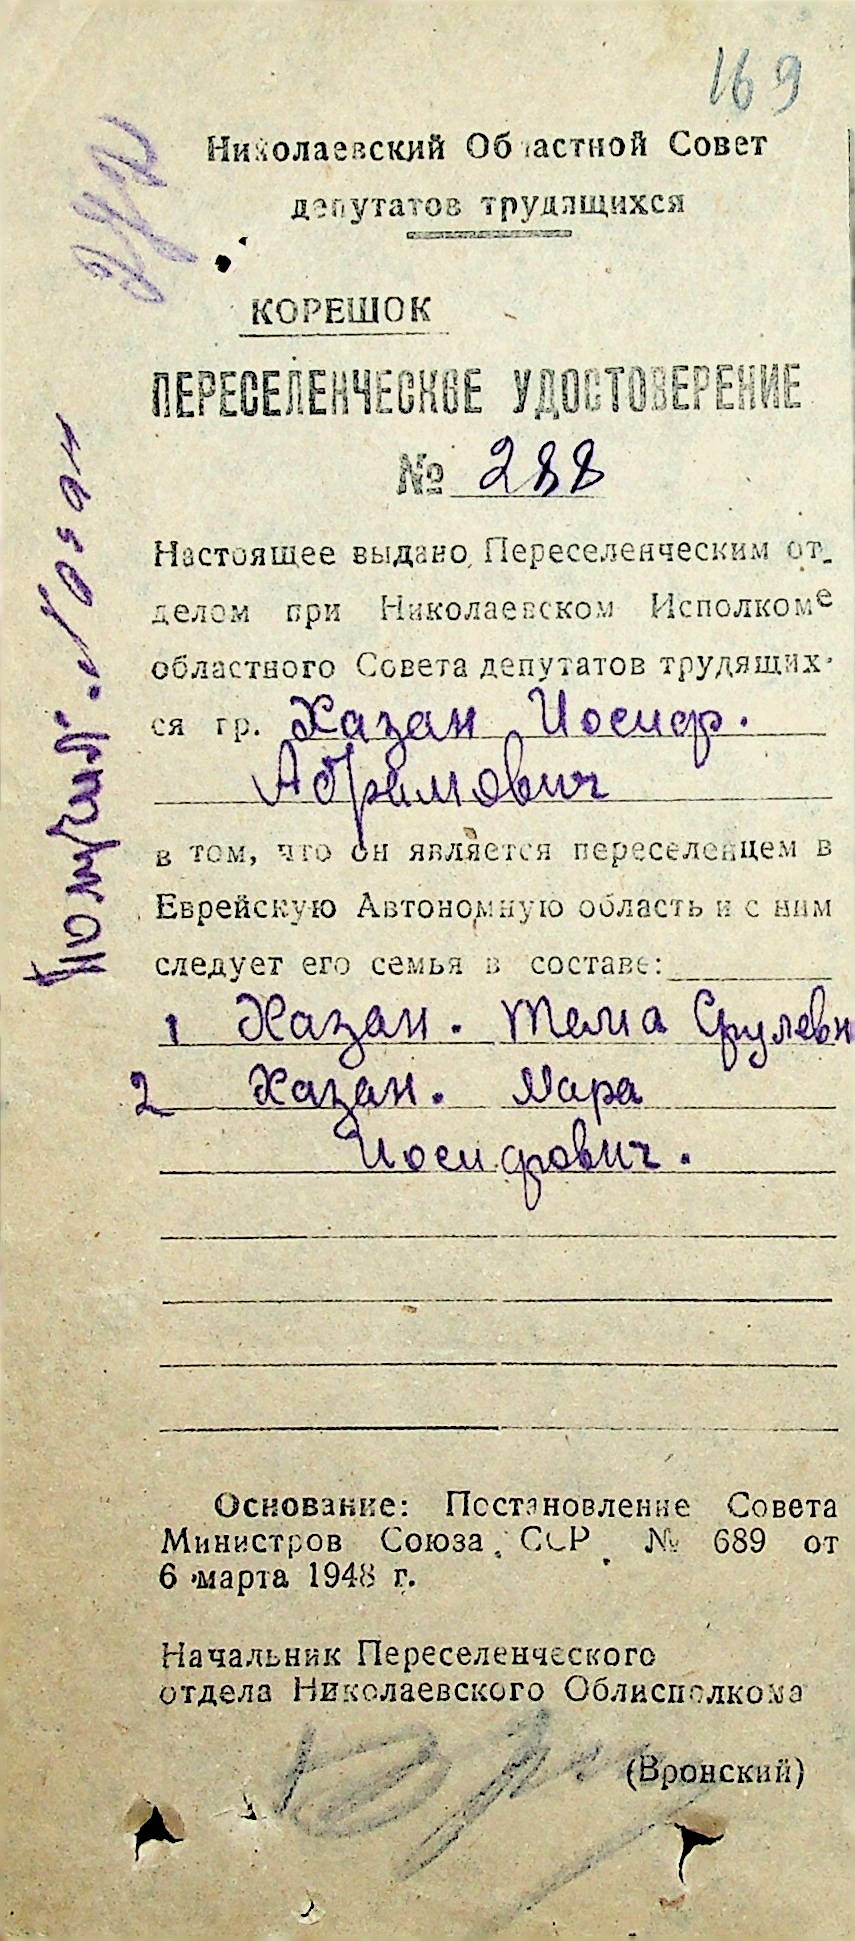 169
Николаевский Областной Совет
депутатов трудящихся
КОРЕШОК
ПЕРЕСЕЛЕНЧЕСКОЕ УДОСТОВЕРЕНИЕ
№ 288
Настоящее выдано Переселенческим от-
делом при Николаевском Исполкоме
областного Совета депутатов трудящих-
ся гр. Хазан Иосиф.
Абрамович
в том, что он является переселенцем в
Еврейскую Автономную область и с ним
следует его семья в составе:
1 Хазан. Тема Срулевн
2 Хазан. Мара
Иосифович.
Основание: Постановление Совета
Министров Союза ССР № 689 от
6 марта 1948 г.
Начальник Переселенческого
отдела Николаевского Облисполкома
(Вронский)
Получил.